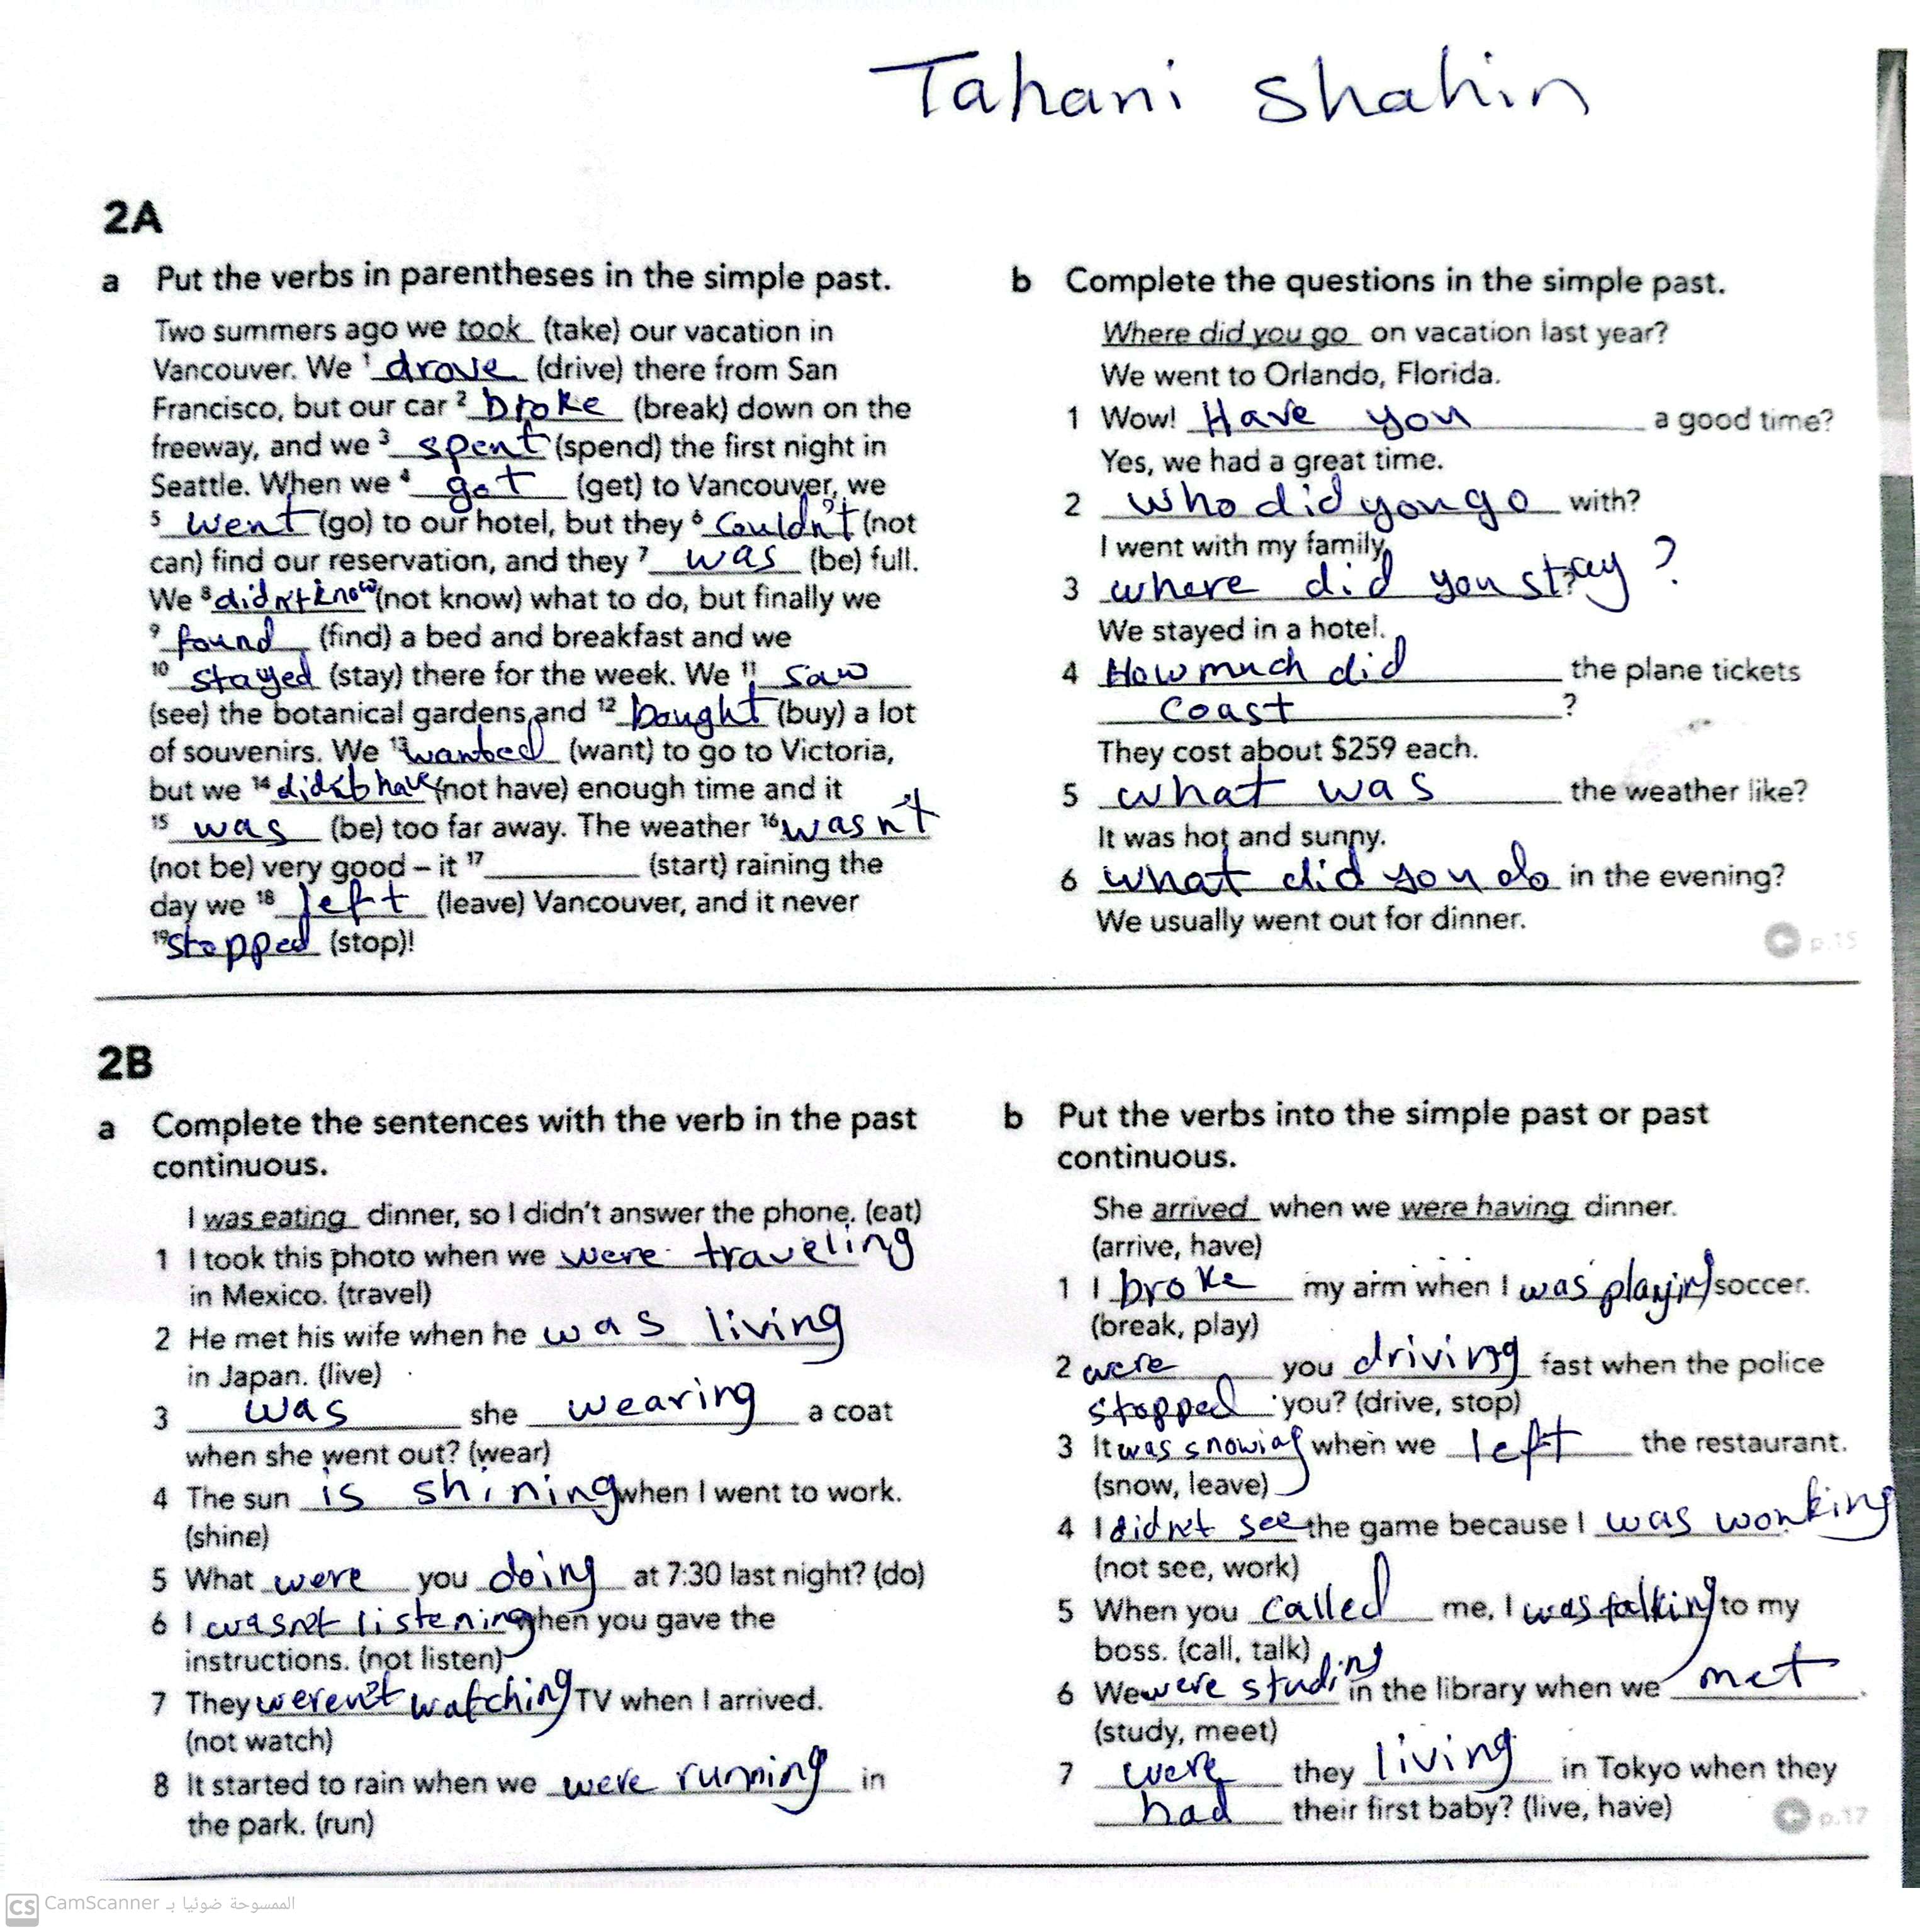 Tahani Shahin
2A
a Put the verbs in parentheses in the simple past.
Two summers ago we took (take) our vacation in
Vancouver. We 1 drove (drive) there from San
Francisco, but our car 2 broke (break) down on the
freeway, and we 3 spent (spend) the first night in
Seattle. When we 4 got (get) to Vancouver, we
5 went (go) to our hotel, but they 6 couldn't (not
can) find our reservation, and they 7 was (be) full.
We 8 didn't know (not know) what to do, but finally we
9 found (find) a bed and breakfast and we
10 stayed (stay) there for the week. We 11 saw
(see) the botanical gardens and 12 bought (buy) a lot
of souvenirs. We 13 wanted (want) to go to Victoria,
but we 14 didn't have (not have) enough time and it
15 was (be) too far away. The weather 16 wasn't
(not be) very good – it 17 (start) raining the
day we 18 left (leave) Vancouver, and it never
19 stopped (stop)!
b Complete the questions in the simple past.
Where did you go on vacation last year?
We went to Orlando, Florida.
1 Wow! Have you a good time?
Yes, we had a great time.
2 who did you go with?
I went with my family.
3 where did you stay ?
We stayed in a hotel.
4 How much did the plane tickets
coast ?
They cost about $259 each.
5 what was the weather like?
It was hot and sunny.
6 what did you do in the evening?
We usually went out for dinner.
p.15
2B
a Complete the sentences with the verb in the past
continuous.
I was eating dinner, so I didn't answer the phone. (eat)
1 I took this photo when we were traveling
in Mexico. (travel)
2 He met his wife when he was living
in Japan. (live)
3 was she wearing a coat
when she went out? (wear)
4 The sun is shining when I went to work.
(shine)
5 What were you doing at 7:30 last night? (do)
6 I wasn't listening when you gave the
instructions. (not listen)
7 They weren't watching TV when I arrived.
(not watch)
8 It started to rain when we were running in
the park. (run)
b Put the verbs into the simple past or past
continuous.
She arrived when we were having dinner.
(arrive, have)
1 I broke my arm when I was playing soccer.
(break, play)
2 were you driving fast when the police
stopped you? (drive, stop)
3 It was snowing when we left the restaurant.
(snow, leave)
4 I didn't see the game because I was working
(not see, work)
5 When you called me, I was talking to my
boss. (call, talk)
6 We were studing in the library when we met .
(study, meet)
7 were they living in Tokyo when they
had their first baby? (live, have)
p.17
CS CamScanner الممسوحة ضوئيا بـ